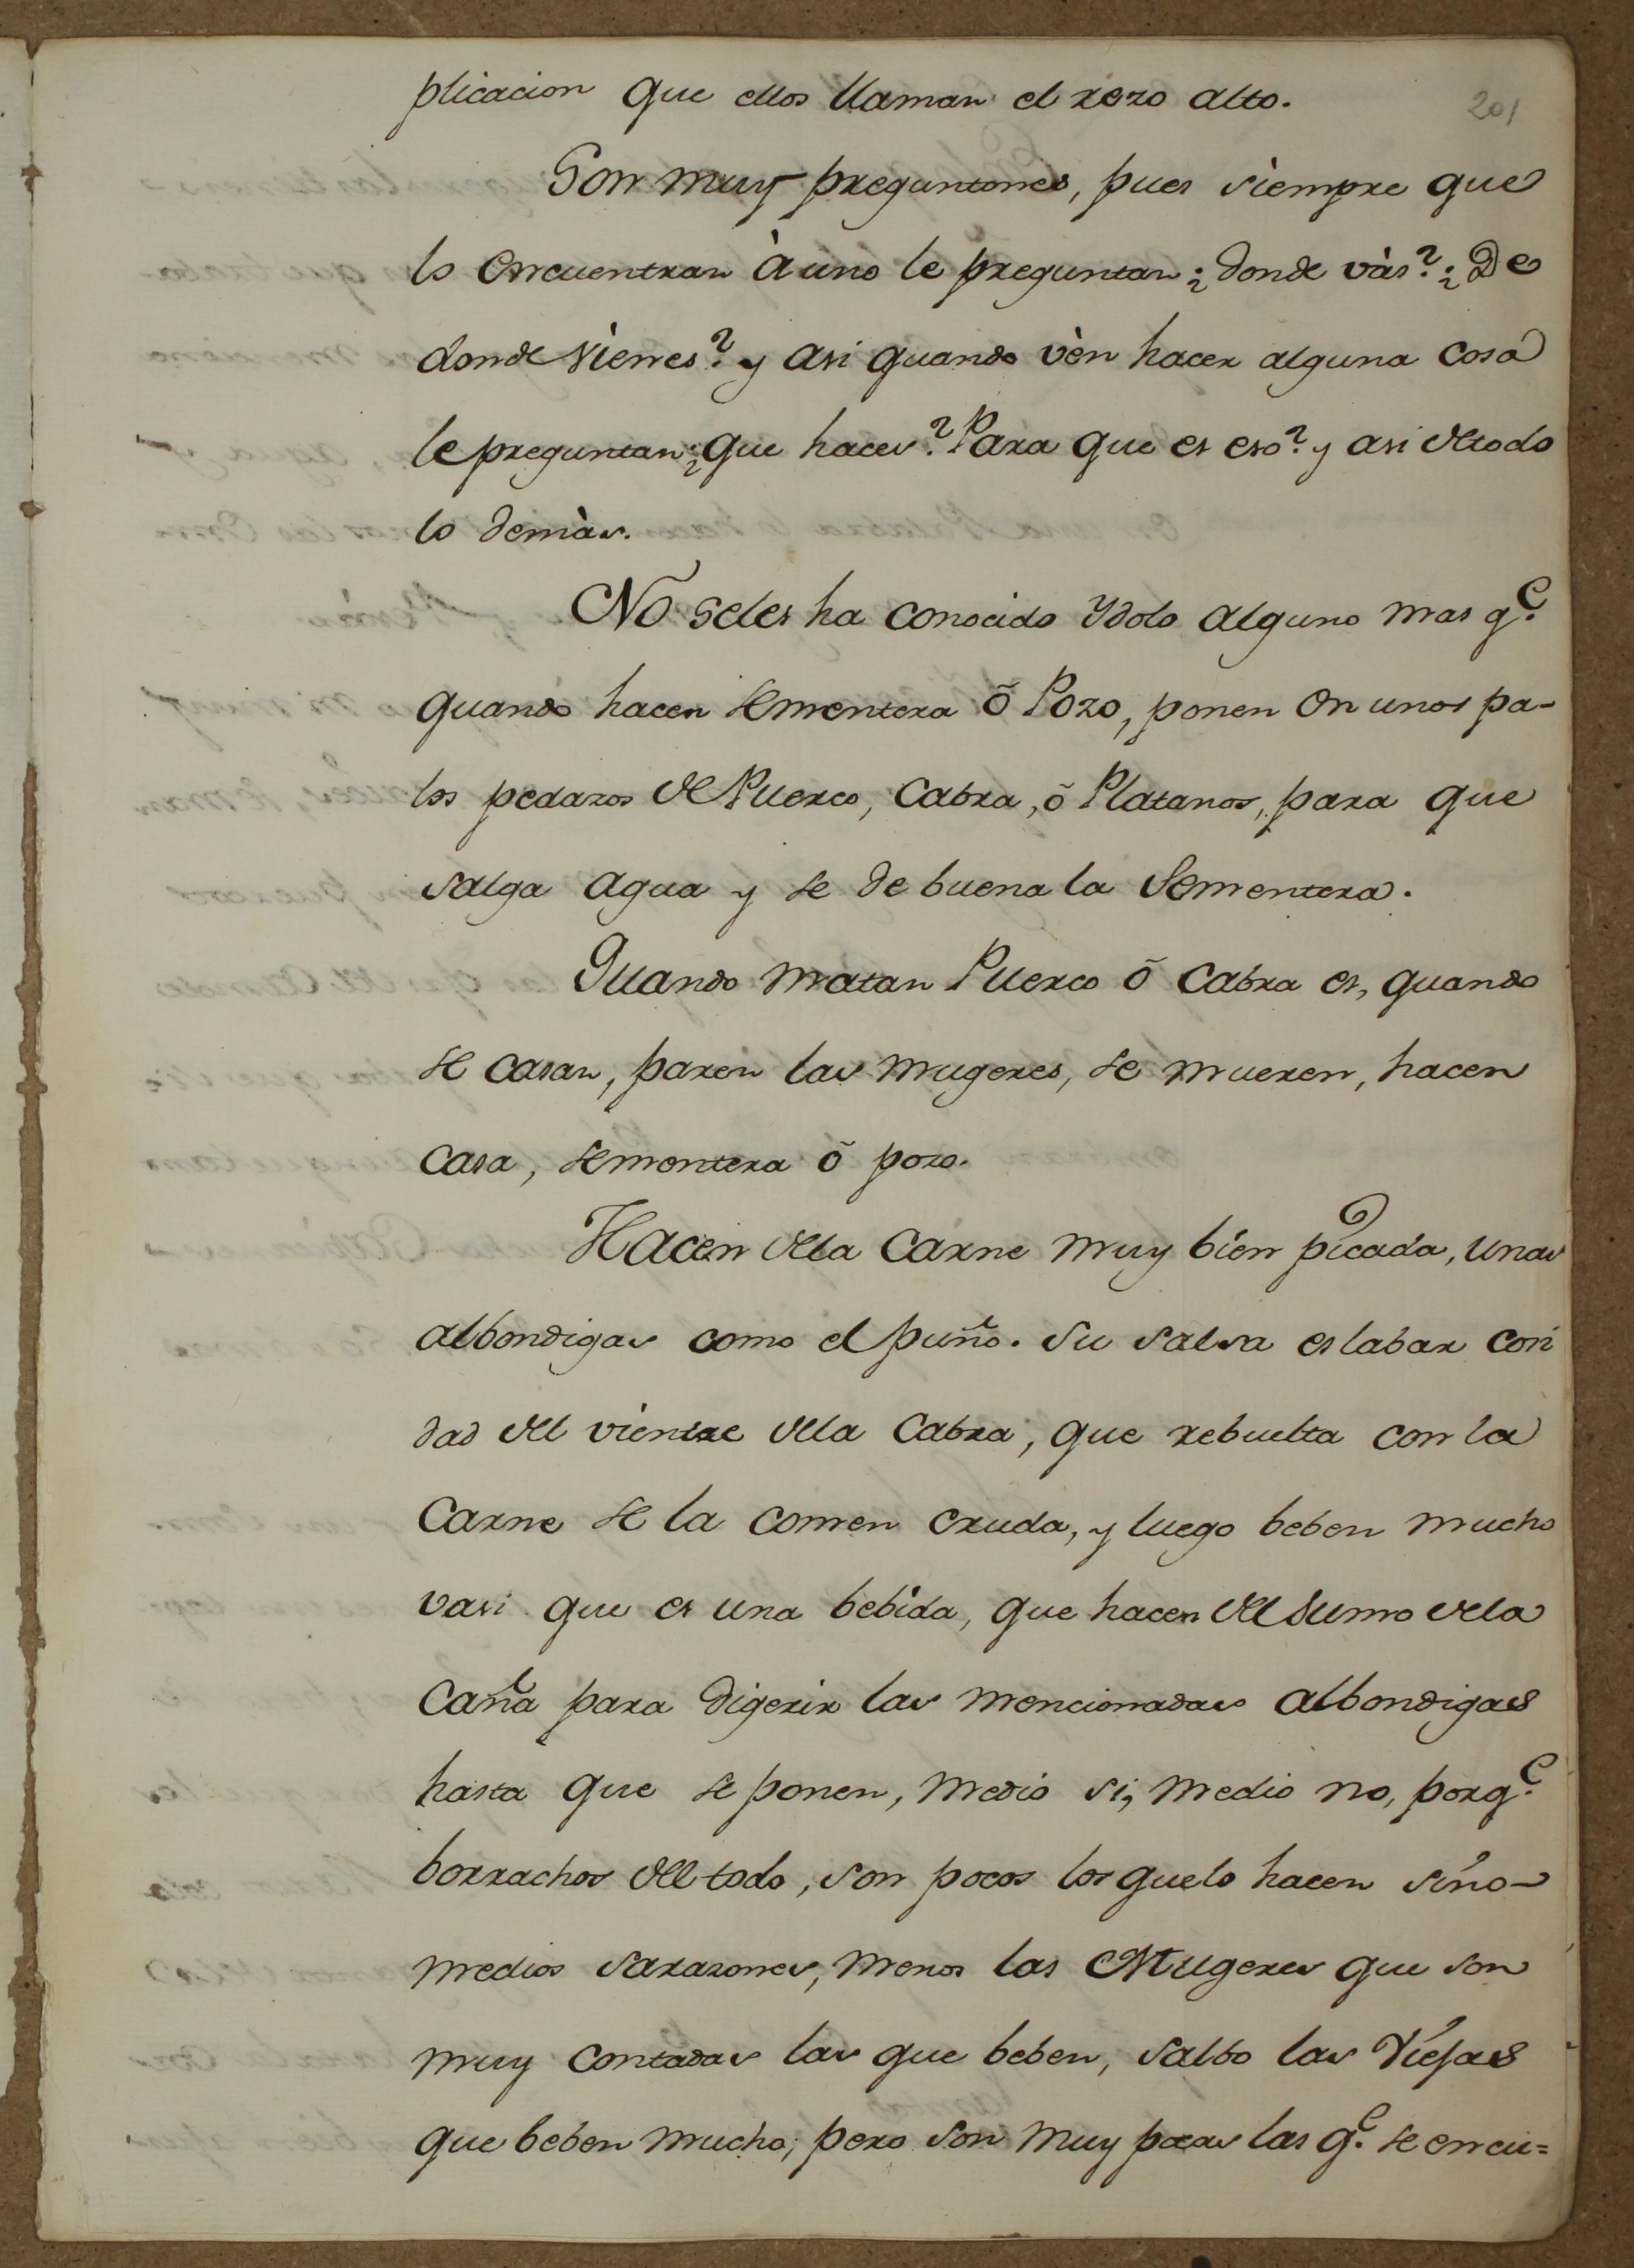 201
plicacion que ellos llaman el rezo alto.
Son muy preguntones, pues siempre que
lo encuentran à uno le preguntan ¿donde vàs? ¿De
donde vienes? y asi quando vèn hacer alguna cosa
le preguntan ¿que haces? Para que es eso? y asi de todo
lo demàs.
No seles ha conocido Ydolo alguno mas q.e
quando hacen sementera õ Pozo, ponen en unos pa-
los pedazos de Puerco, Cabra, õ Platanos, para que
salga agua y se de buena la Sementera.
Quando matan Puerco õ Cabra es, quando
se casan, paren las mugeres, se mueren, hacen
casa, sementera õ pozo.
Hacen de la Carne muy bien picada, unas
albondigas como el puño. Su salsa es labar con
dad del vientre de la Cabra, que rebuelta con la
Carne se la comen cruda, y luego beben mucho
vasi que es una bebida, que hacen del sumo de la
Caña para digerir las mencionadas albondigas
hasta que se ponen, medio si, medio no, porq.e
borrachos del todo, son pocos los que lo hacen sino
medios sarazones, menos las Mugeres que son
muy contadas las que beben, salbo las Viejas
que beben mucho; pero son muy pocas las q.e se encu=